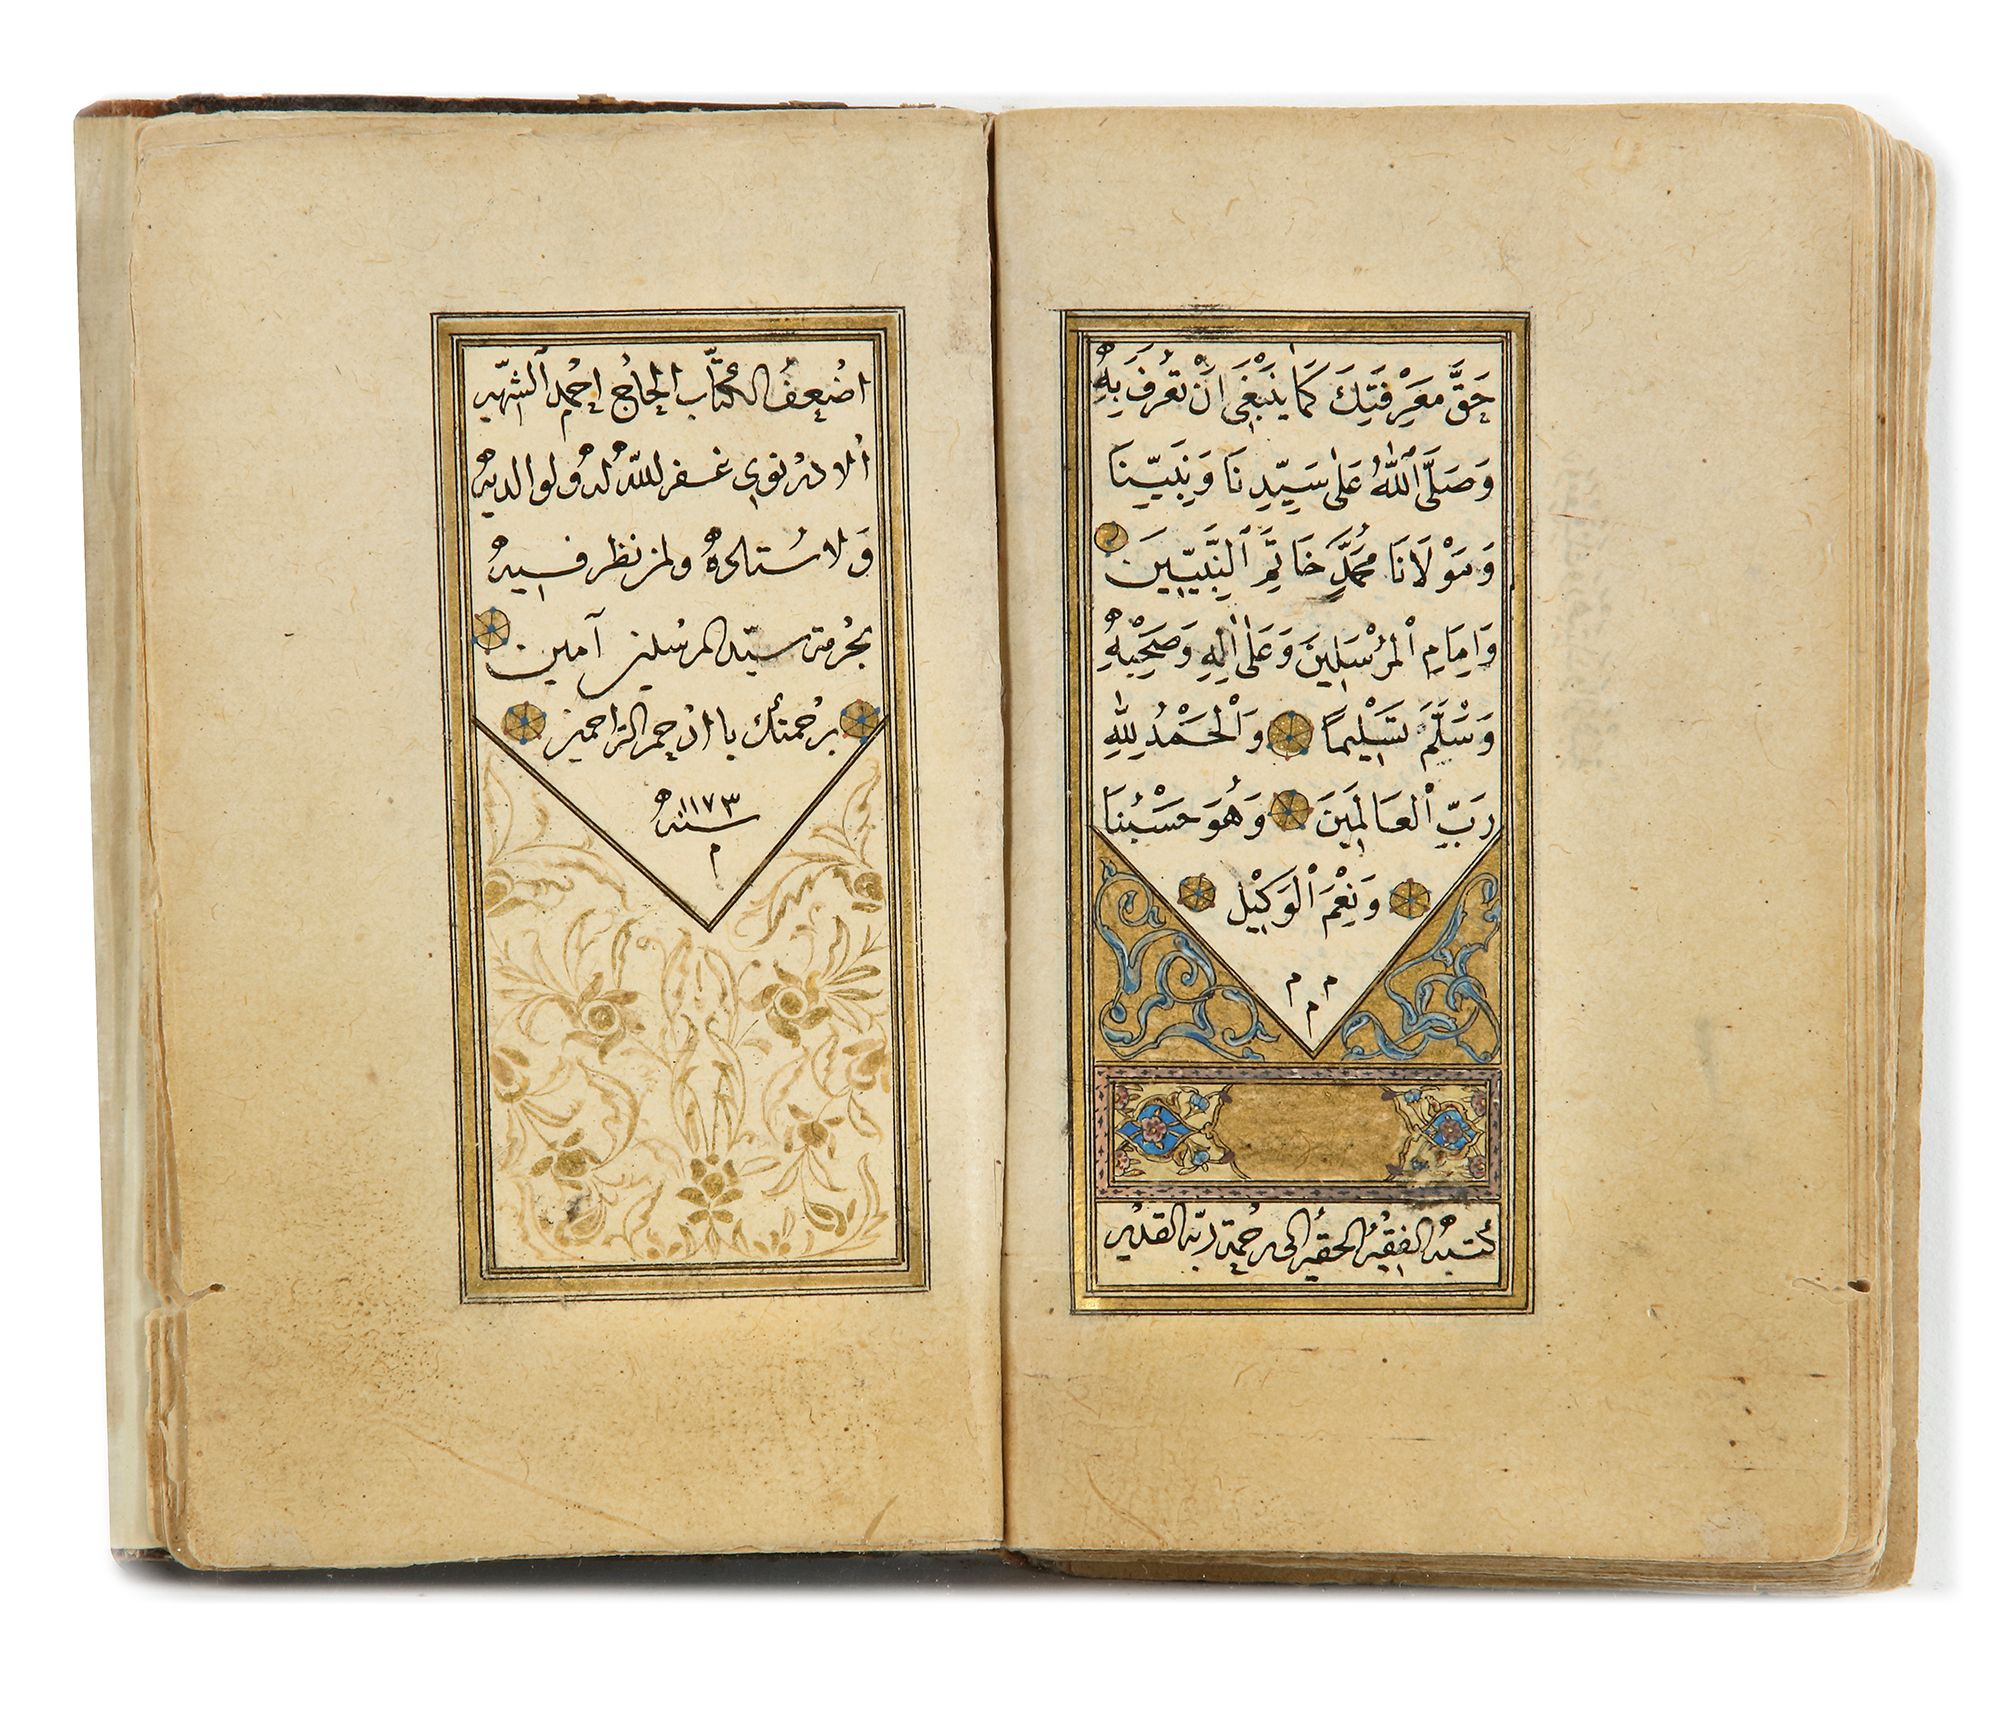 حَقَّ مَعْرِفَتِكَ كَمَا يَنْبَغِي اَنْ تُعْرَفَ بِهِ
وَصَلَّى ٱللّٰهُ عَلٰى سَيِّدِنَا وَنَبِيِّنَا
وَمَوْلَانَا مُحَمَّدٍ خَاتَمِ ٱلنَّبِيِّينَ
وَاِمَامِ ٱلْمُرْسَلِينَ وَعَلٰى اٰلِهِ وَصَحْبِهِ
وَسَلَّمَ تَسْلِيمًا وَٱلْحَمْدُ لِلّٰهِ
رَبِّ ٱلْعَالَمِينَ وَهُوَ حَسْبُنَا
وَنِعْمَ ٱلْوَكِيْلُ
م م
م
كتبه الفقير الحقير الى رحمة ربه القدير
اضعف الكتّاب الحاج احمد الشهير
غفر اللّه له ولوالديه
ولاستاده ولمن نظر فيه
بحرمة سيّد المرسلين آمين
برحمتك يا ارحم الرّاحمين
سنه ١١٧٣
م